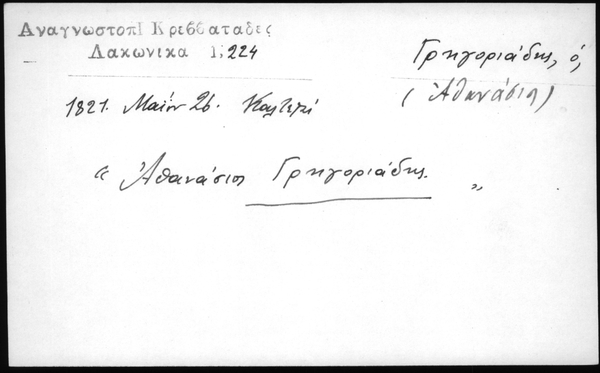 ΑναγνωστοπΙ Κρεββαταδες
Λακωνικα Ι, 224
Γρηγοριάδης, ὁ,
(Ἀθανάσιος)
1821. Μαΐου 26. Καλτεζί
" Ἀθανάσιος Γρηγοριάδης. "